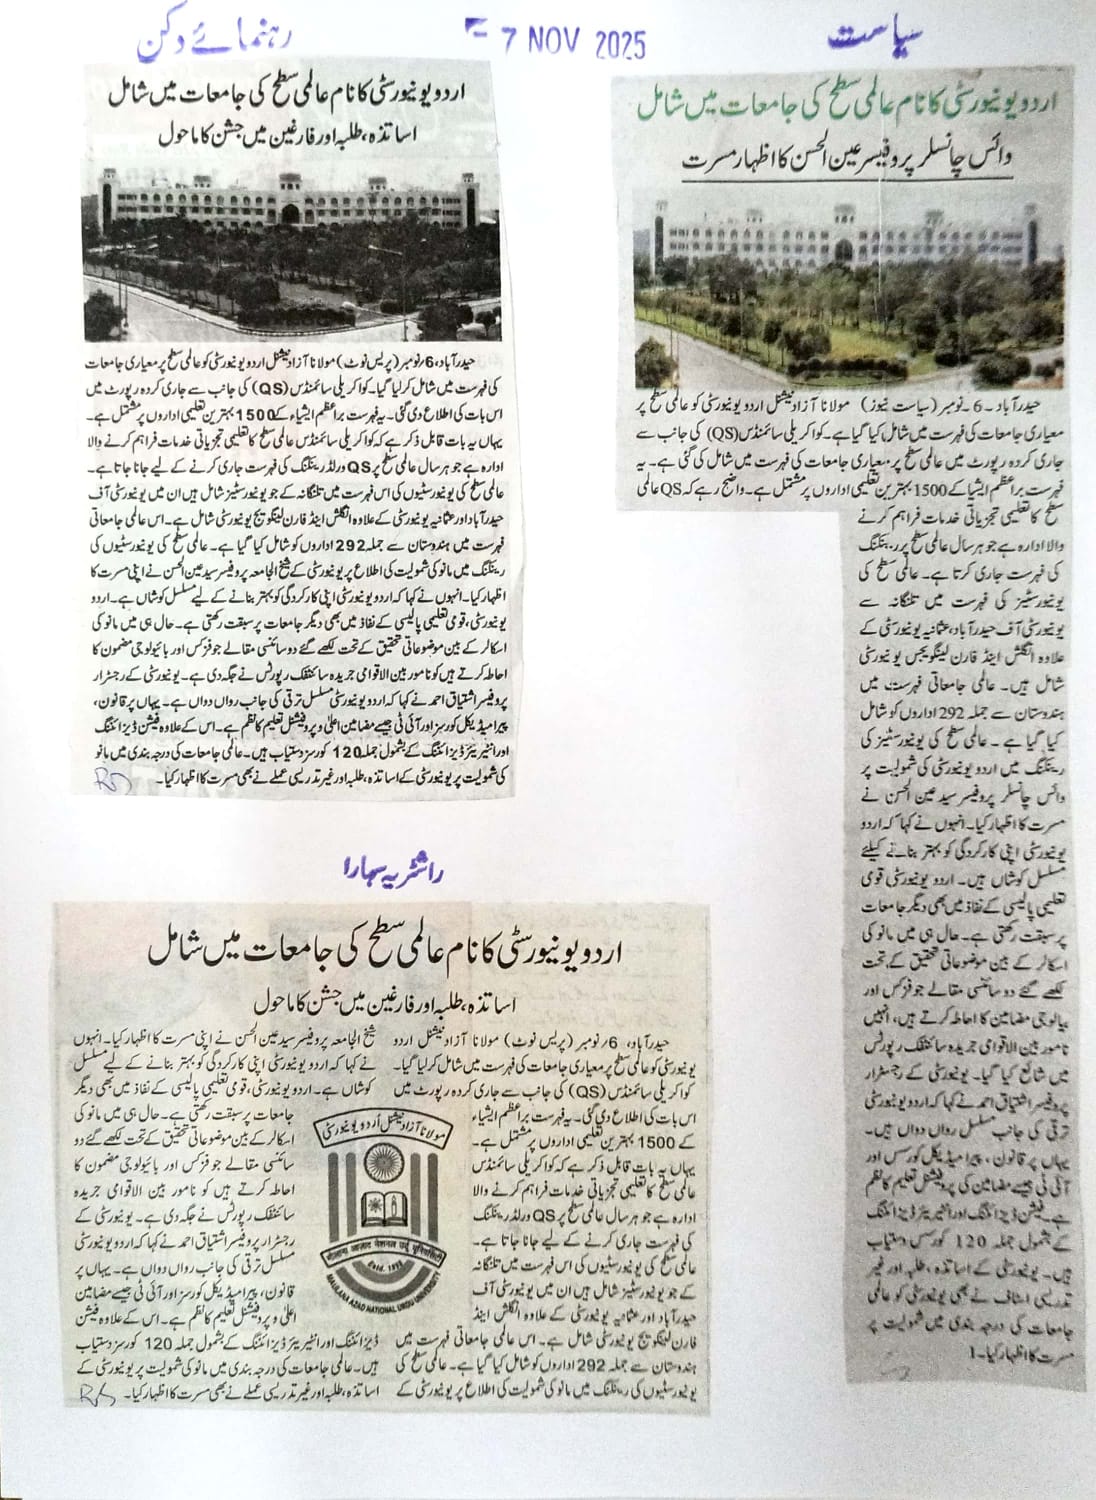 رہنمائے دکن
7 NOV 2025
سیاست
اردو یونیورسٹی کا نام عالمی سطح کی جامعات میں شامل
اساتذہ، طلبہ اور فارغین میں جشن کا ماحول
حیدرآباد، 6/نومبر (پریس نوٹ) مولانا آزاد نیشنل اردو یونیورسٹی کو عالمی سطح پر معیاری جامعات
کی فہرست میں شامل کرلیا گیا۔ کواکریلی سائمنڈس (QS) کی جانب سے جاری کردہ رپورٹ میں
اس بات کی اطلاع دی گئی۔ یہ فہرست براعظم ایشیاء کے 1500 بہترین تعلیمی اداروں پر مشتمل ہے۔
یہاں یہ بات قابل ذکر ہے کہ کواکریلی سائمنڈس عالمی سطح کا تعلیمی تجزیاتی خدمات فراہم کرنے والا
ادارہ ہے جو ہر سال عالمی سطح پر QS ورلڈ رینکنگ کی فہرست جاری کرنے کے لیے جانا جاتا ہے۔
عالمی سطح کی یونیورسٹیوں کی اس فہرست میں تلنگانہ کے جو یونیورسٹیز شامل ہیں ان میں یونیورسٹی آف
حیدرآباد اور عثمانیہ یونیورسٹی کے علاوہ انگلش اینڈ فارن لینگویج یونیورسٹی شامل ہے۔ اس عالمی جامعاتی
فہرست میں ہندوستان سے جملہ 292 اداروں کو شامل کیا گیا ہے۔ عالمی سطح کی یونیورسٹیوں کی
رینکنگ میں مانو کی شمولیت کی اطلاع پر یونیورسٹی کے شیخ الجامعہ پروفیسر سید عین الحسن نے اپنی مسرت کا
اظہار کیا۔ انہوں نے کہا کہ اردو یونیورسٹی اپنی کارکردگی کو بہتر بنانے کے لیے مسلسل کوشاں ہے۔ اردو
یونیورسٹی، قومی تعلیمی پالیسی کے نفاذ میں بھی دیگر جامعات پر سبقت رکھتی ہے۔ حال ہی میں مانو کی
اسکالر کے بین موضوعاتی تحقیق کے تحت لکھے گئے دو سائنسی مقالے جو فزکس اور بائیولوجی مضمون کا
احاطہ کرتے ہیں کو نامور بین الاقوامی جریدہ سائنٹفک رپورٹس نے جگہ دی ہے۔ یونیورسٹی کے رجسٹرار
پروفیسر اشتیاق احمد نے کہا کہ اردو یونیورسٹی مسلسل ترقی کی جانب رواں دواں ہے۔ یہاں پر قانون،
پیرامیڈیکل کورسز اور آئی ٹی جیسے مضامین اعلیٰ و پروفیشنل تعلیم کا نظم ہے۔ اس کے علاوہ فیشن ڈیزائننگ
اور انٹیریئر ڈیزائننگ کے بشمول جملہ 120 کورسز دستیاب ہیں۔ عالمی جامعات کی درجہ بندی میں مانو
کی شمولیت پر یونیورسٹی کے اساتذہ، طلبہ اور غیر تدریسی عملے نے بھی مسرت کا اظہار کیا۔
اردو یونیورسٹی کا نام عالمی سطح کی جامعات میں شامل
وائس چانسلر پروفیسر عین الحسن کا اظہار مسرت
حیدرآباد۔ 6۔ نومبر (سیاست نیوز) مولانا آزاد نیشنل اردو یونیورسٹی کو عالمی سطح پر
معیاری جامعات کی فہرست میں شامل کیا گیا ہے۔ کواکریلی سائمنڈس (QS) کی جانب سے
جاری کردہ رپورٹ میں عالمی سطح پر معیاری جامعات کی فہرست میں شامل کی گئی ہے۔ یہ
فہرست براعظم ایشیا کے 1500 بہترین تعلیمی اداروں پر مشتمل ہے۔ واضح رہے کہ QS عالمی
سطح کا تعلیمی تجزیاتی خدمات فراہم کرنے
والا ادارہ ہے جو ہر سال عالمی سطح پر رینکنگ
کی فہرست جاری کرتا ہے۔ عالمی سطح کی
یونیورسٹیز کی فہرست میں تلنگانہ سے
یونیورسٹی آف حیدرآباد، عثمانیہ یونیورسٹی کے
علاوہ انگلش اینڈ فارن لینگویجس یونیورسٹی
شامل ہیں۔ عالمی جامعاتی فہرست میں
ہندوستان سے جملہ 292 اداروں کو شامل
کیا گیا ہے۔ عالمی سطح کی یونیورسٹیز کی
رینکنگ میں اردو یونیورسٹی کی شمولیت پر
وائس چانسلر پروفیسر سید عین الحسن نے
مسرت کا اظہار کیا۔ انہوں نے کہا کہ اردو
یونیورسٹی اپنی کارکردگی کو بہتر بنانے کیلئے
مسلسل کوشاں ہیں۔ اردو یونیورسٹی قومی
تعلیمی پالیسی کے نفاذ میں بھی دیگر جامعات
پر سبقت رکھتی ہے۔ حال ہی میں مانو کی
اسکالر کے بین موضوعاتی تحقیق کے تحت
لکھے گئے دو سائنسی مقالے جو فزکس اور
بیالوجی مضامین کا احاطہ کرتے ہیں، انہیں
نامور بین الاقوامی جریدہ سائنٹفک رپورٹس
میں شائع کیا گیا۔ یونیورسٹی کے رجسٹرار
پروفیسر اشتیاق احمد نے کہا کہ اردو یونیورسٹی
ترقی کی جانب مسلسل رواں دواں ہیں۔
یہاں پر قانون، پیرامیڈیکل کورسس اور
آئی ٹی جیسے مضامین کی پروفیشنل تعلیم کا نظم
ہے۔ فیشن ڈیزائننگ اور انٹیریئر ڈیزائننگ
کے بشمول جملہ 120 کورسس دستیاب
ہیں۔ یونیورسٹی کے اساتذہ، طلبہ اور غیر
تدریسی اسٹاف نے بھی یونیورسٹی کو عالمی
جامعات کی درجہ بندی میں شمولیت پر
مسرت کا اظہار کیا۔ 1
راشٹریہ سہارا
اردو یونیورسٹی کا نام عالمی سطح کی جامعات میں شامل
اساتذہ، طلبہ اور فارغین میں جشن کا ماحول
حیدرآباد، 6/نومبر (پریس نوٹ) مولانا آزاد نیشنل اردو
یونیورسٹی کو عالمی سطح پر معیاری جامعات کی فہرست میں شامل کرلیا گیا۔
کواکریلی سائمنڈس (QS) کی جانب سے جاری کردہ رپورٹ میں
اس بات کی اطلاع دی گئی۔ یہ فہرست براعظم ایشیاء
کے 1500 بہترین تعلیمی اداروں پر مشتمل ہے۔
یہاں یہ بات قابل ذکر ہے کہ کواکریلی سائمنڈس
عالمی سطح کا تعلیمی تجزیاتی خدمات فراہم کرنے والا
ادارہ ہے جو ہر سال عالمی سطح پر QS ورلڈ رینکنگ
کی فہرست جاری کرنے کے لیے جانا جاتا ہے۔
عالمی سطح کی یونیورسٹیوں کی اس فہرست میں تلنگانہ
کے جو یونیورسٹیز شامل ہیں ان میں یونیورسٹی آف
حیدرآباد اور عثمانیہ یونیورسٹی کے علاوہ انگلش اینڈ
فارن لینگویج یونیورسٹی شامل ہے۔ اس عالمی جامعاتی فہرست میں
ہندوستان سے جملہ 292 اداروں کو شامل کیا گیا ہے۔ عالمی سطح کی
یونیورسٹیوں کی رینکنگ میں مانو کی شمولیت کی اطلاع پر یونیورسٹی کے
شیخ الجامعہ پروفیسر سید عین الحسن نے اپنی مسرت کا اظہار کیا۔ انہوں
نے کہا کہ اردو یونیورسٹی اپنی کارکردگی کو بہتر بنانے کے لیے مسلسل
کوشاں ہے۔ اردو یونیورسٹی، قومی تعلیمی پالیسی کے نفاذ میں بھی دیگر
جامعات پر سبقت رکھتی ہے۔ حال ہی میں مانو کی
اسکالر کے بین موضوعاتی تحقیق کے تحت لکھے گئے دو
سائنسی مقالے جو فزکس اور بائیولوجی مضمون کا
احاطہ کرتے ہیں کو نامور بین الاقوامی جریدہ
سائنٹفک رپورٹس نے جگہ دی ہے۔ یونیورسٹی کے
رجسٹرار پروفیسر اشتیاق احمد نے کہا کہ اردو یونیورسٹی
مسلسل ترقی کی جانب رواں دواں ہے۔ یہاں پر
قانون، پیرامیڈیکل کورسز اور آئی ٹی جیسے مضامین
اعلیٰ و پروفیشنل تعلیم کا نظم ہے۔ اس کے علاوہ فیشن
ڈیزائننگ اور انٹیریئر ڈیزائننگ کے بشمول جملہ 120 کورسز دستیاب
ہیں۔ عالمی جامعات کی درجہ بندی میں مانو کی شمولیت پر یونیورسٹی کے
اساتذہ، طلبہ اور غیر تدریسی عملے نے بھی مسرت کا اظہار کیا۔
مولانا آزاد نیشنل اُردو یونیورسٹی
मौलाना आज़ाद नेशनल उर्दू यूनिवर्सिटी
Estd. 1998
MAULANA AZAD NATIONAL URDU UNIVERSITY